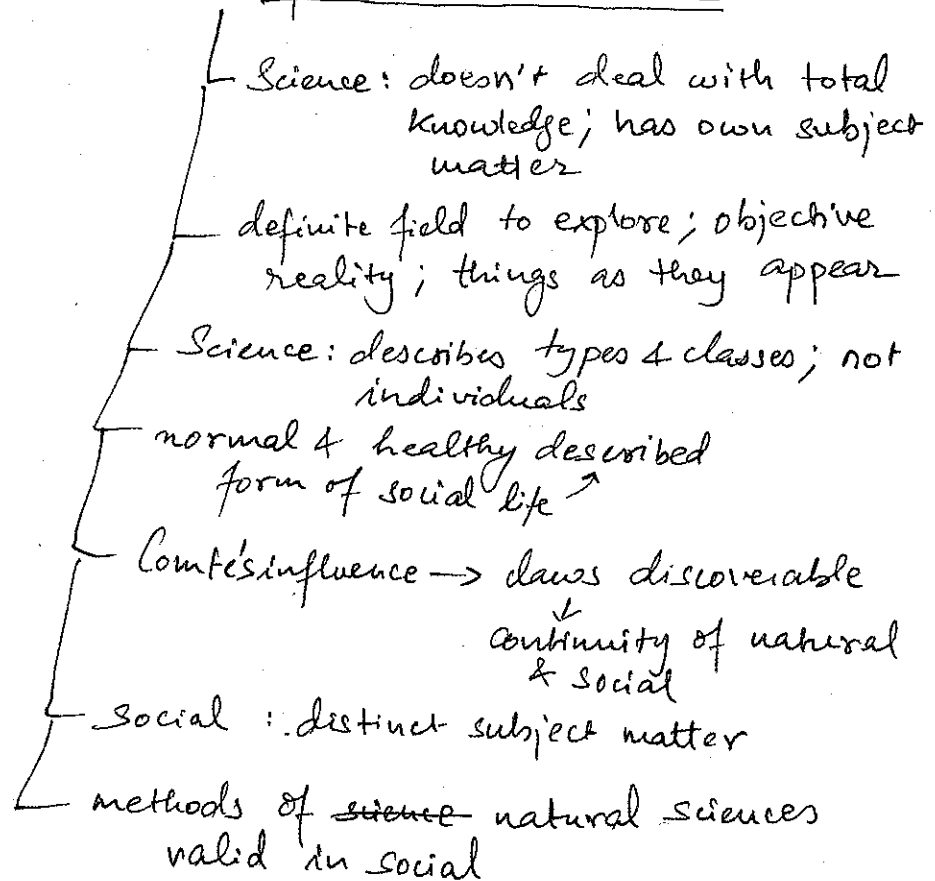 Science: doesn't deal with total
knowledge; has own subject
matter
definite field to explore; objective
reality; things as they appear
Science: describes types & classes; not
individuals
normal & healthy described
form of social life
Comte's influence → laws discoverable
↓
continuity of natural
& social
Social : distinct subject matter
methods of ~~science~~ natural sciences
valid in social